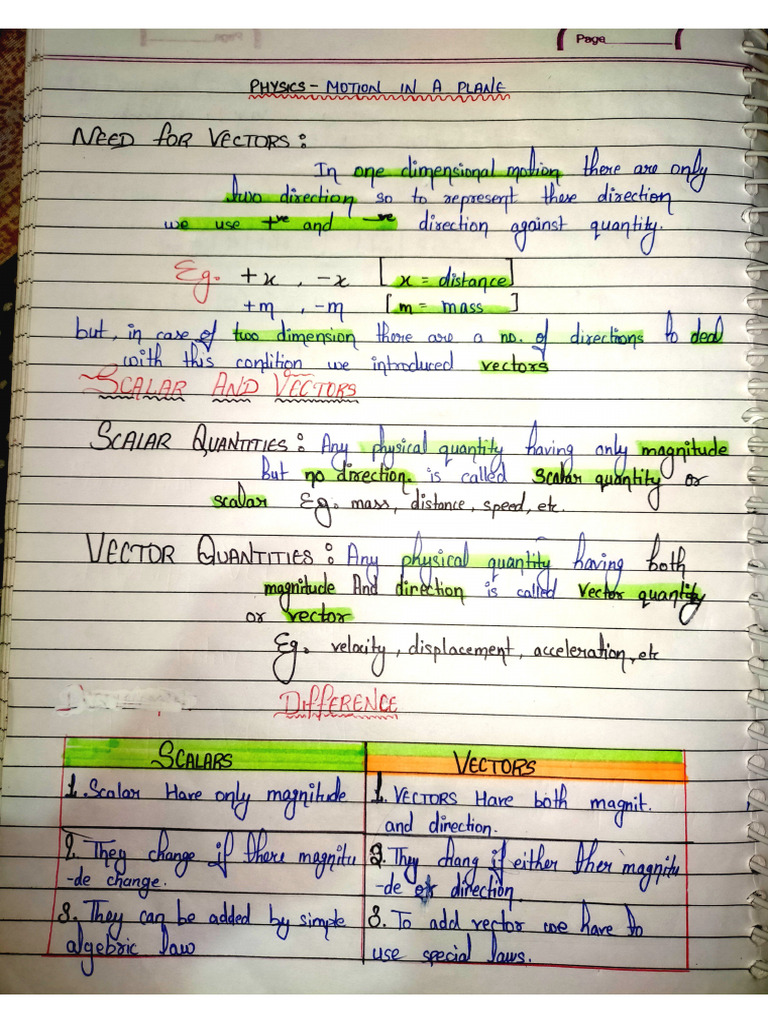 Page
PHYSICS - MOTION IN A PLANE
NEED FOR VECTORS:
In one dimensional motion there are only
two direction so to represent these direction
we use +ve and -ve direction against quantity.
Eg. +x , -x [x = distance]
+m , -m [m = mass]
but, in case of two dimension there are a no. of directions to deal
with this condition we introduced vectors
SCALAR AND VECTORS
SCALAR QUANTITIES: Any physical quantity having only magnitude
But no direction. is called Scalar quantity or
scalar Eg. mass, distance, speed, etc.
VECTOR QUANTITIES: Any physical quantity having both
magnitude And direction is called Vector quantity
or vector
Eg. velocity, displacement, acceleration, etc
DIFFERENCE
SCALARS VECTORS
1. Scalar Have only magnitude
1. VECTORS Have both magnit.
and direction.
2. They change if there magnitu
-de change.
2. They chang if either ther magnitu
-de or direction.
3. They can be added by simple
algebric law
3. To add vector we have to
use special laws.